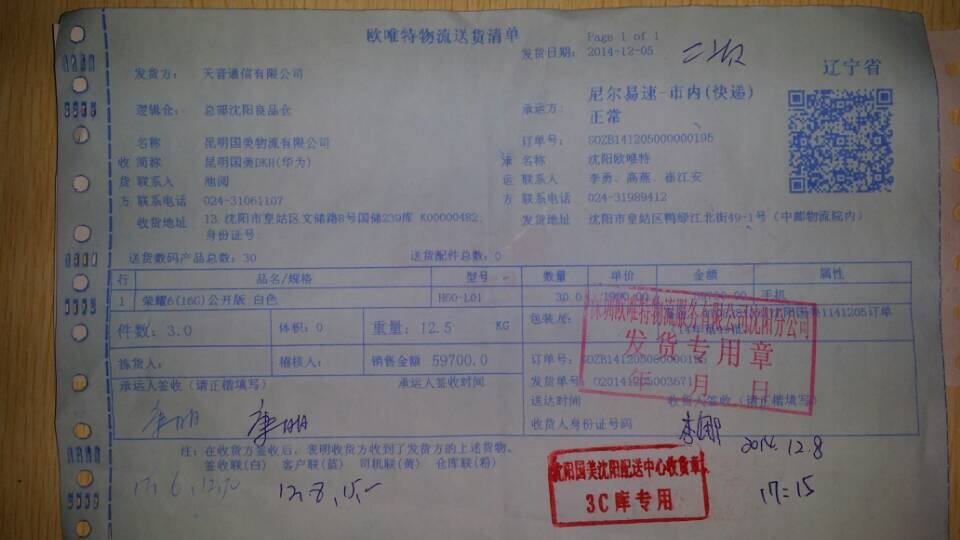 欧唯特物流送货清单
Page 1 of 1
发货日期: 2014-12-05
辽宁省
发货方: 天音通信有限公司
逻辑仓: 总部沈阳良品仓
承运方: 尼尔易速-市内(快递)
正常
订单号: SOZB141205000000195
名称 昆明国美物流有限公司
承 名称 沈阳欧唯特
收 简称 昆明国美DKH(华为)
货 联系人 池阅
运 联系人 李勇、高燕、崔江安
方 联系电话 024-31061107
方 联系电话 024-31989412
收货地址 13.沈阳市皇姑区文储路8号国储239库 K00000482,
身份证号:
发货地址 沈阳市皇姑区鸭绿江北街49-1号(中邮物流院内)
送货数码产品总数: 30
送货配件总数: 0
行 品名/规格 型号 数量 单价 金额 属性
1 荣耀6(16G)公开版 白色 H60-L01 30.0 1990.00 手机
件数: 3.0 体积: 0 重量: 12.5 KG
拣货人: 稽核人: 销售金额 59700.0
订单号: SOZB141205000000195
承运人签收(请正楷填写) 承运人签收时间
发货单号: 020141205003671
送达时间 收货人签收(请正楷填写)
收货人身份证号码
深圳欧唯特物流服务有限公司沈阳分公司
发货专用章
年 月 日
2014.12.8
17:15
注: 在收货方签收后、表明收货方收到了发货方的上述货物。
签收联(白) 客户联(蓝) 司机联(黄) 仓库联(粉)
12.8,15.
沈阳国美沈阳配送中心收货章
3C库专用